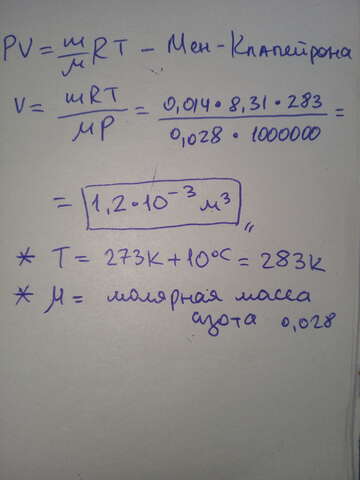 PV = m/μ RT - Мен-Клапейрона
V = mRT/μP = 0,014 · 8,31 · 283/0,028 · 1000000 =
= 1,2 · 10⁻³ м³
* T = 273K + 10°C = 283K
* μ = молярная масса
азота 0,028